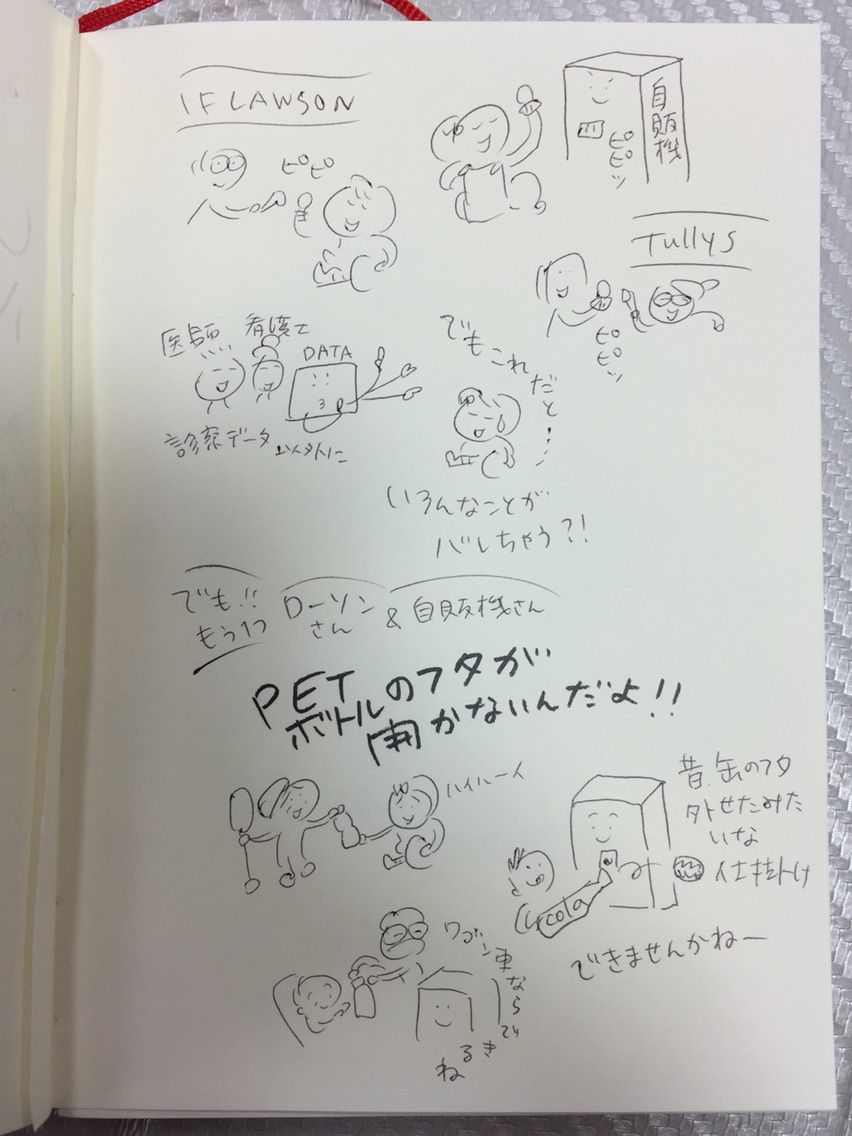 1F LAWSON
ピピ
自販機
ピピッ
Tullys
ピピッ
医師
看護士
DATA
診察データ以外に
でもこれだと…
いろんなことが
バレちゃう?!
でも!!
もう1つ
ローソン
さん
&
自販機さん
PET
ボトルのフタが
開かないんだよ!!
ハイハーイ
昔、缶のフタ
外せたみた
いな
仕掛け
cola
できませんかねー
ワゴン車なら
できるね